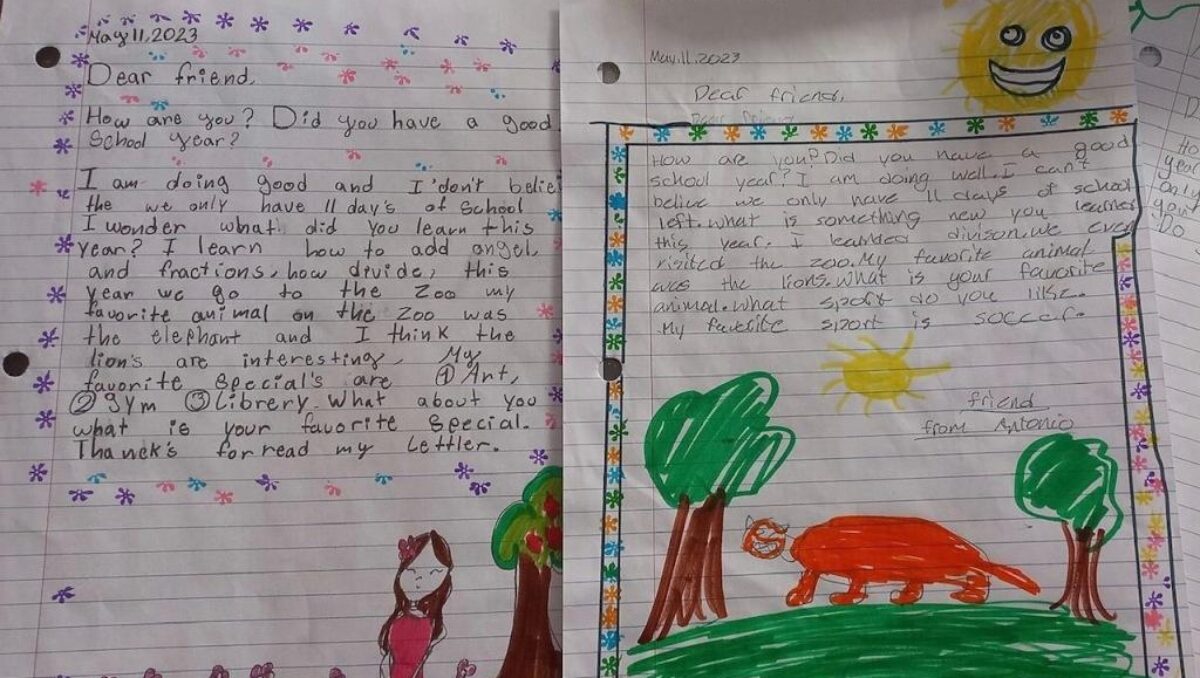 May 11, 2023
Dear friend,
How are you? Did you have a good
School year?
I am doing good and I'don't belie
the we only have 11 day's of School
I wonder what did you learn this
year? I learn how to add angel,
and fractions, how divide, this
year we go to the Zoo my
favorite animal on the Zoo was
the elephant and I think the
lion's are interesting. My
favorite Special's are ① Art,
② gym ③ Librery. What about you
what is your favorite special.
Thanck's for read my Lettler.
May.11.2023
Dear friend,
Dear
How are you? Did you have a good
school year? I am doing well. I can't
belive we only have 11 days of school
left. what is something new you learned
this year. I learnded divison. we even
visited the zoo. My favorite animal
was the lions. What is your favorite
animal. What sport do you like.
My favorite sport is soccer.
friend
from Antonio
Ho
year
onl
you
Do